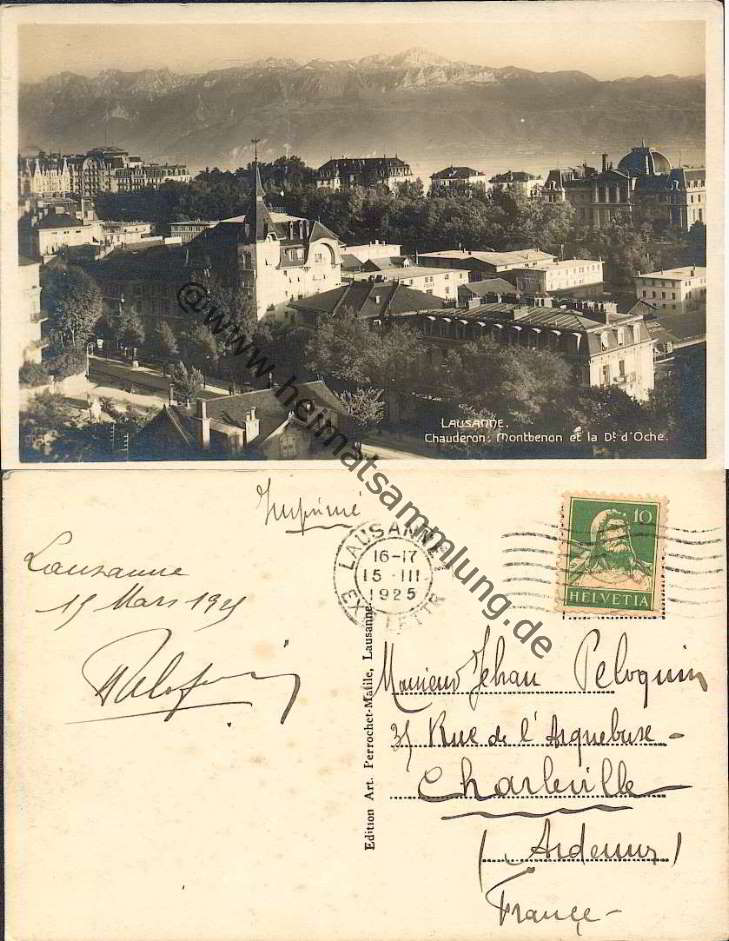 LAUSANNE.
Chauderon; Montbenon et la Dt d'Oche.
@www.heimatsammlung.de
Imprimé
Lausanne
15 Mars 1925
LAUSANNE 1
16-17
15-III
1925
EXP. LETTR.
10
HELVETIA
Edition Art. Perrochet-Matile, Lausanne.
Monsieur Jehan Peloquin
35 Rue de l'Arquebuse-
Charleville
(Ardennes)
France-